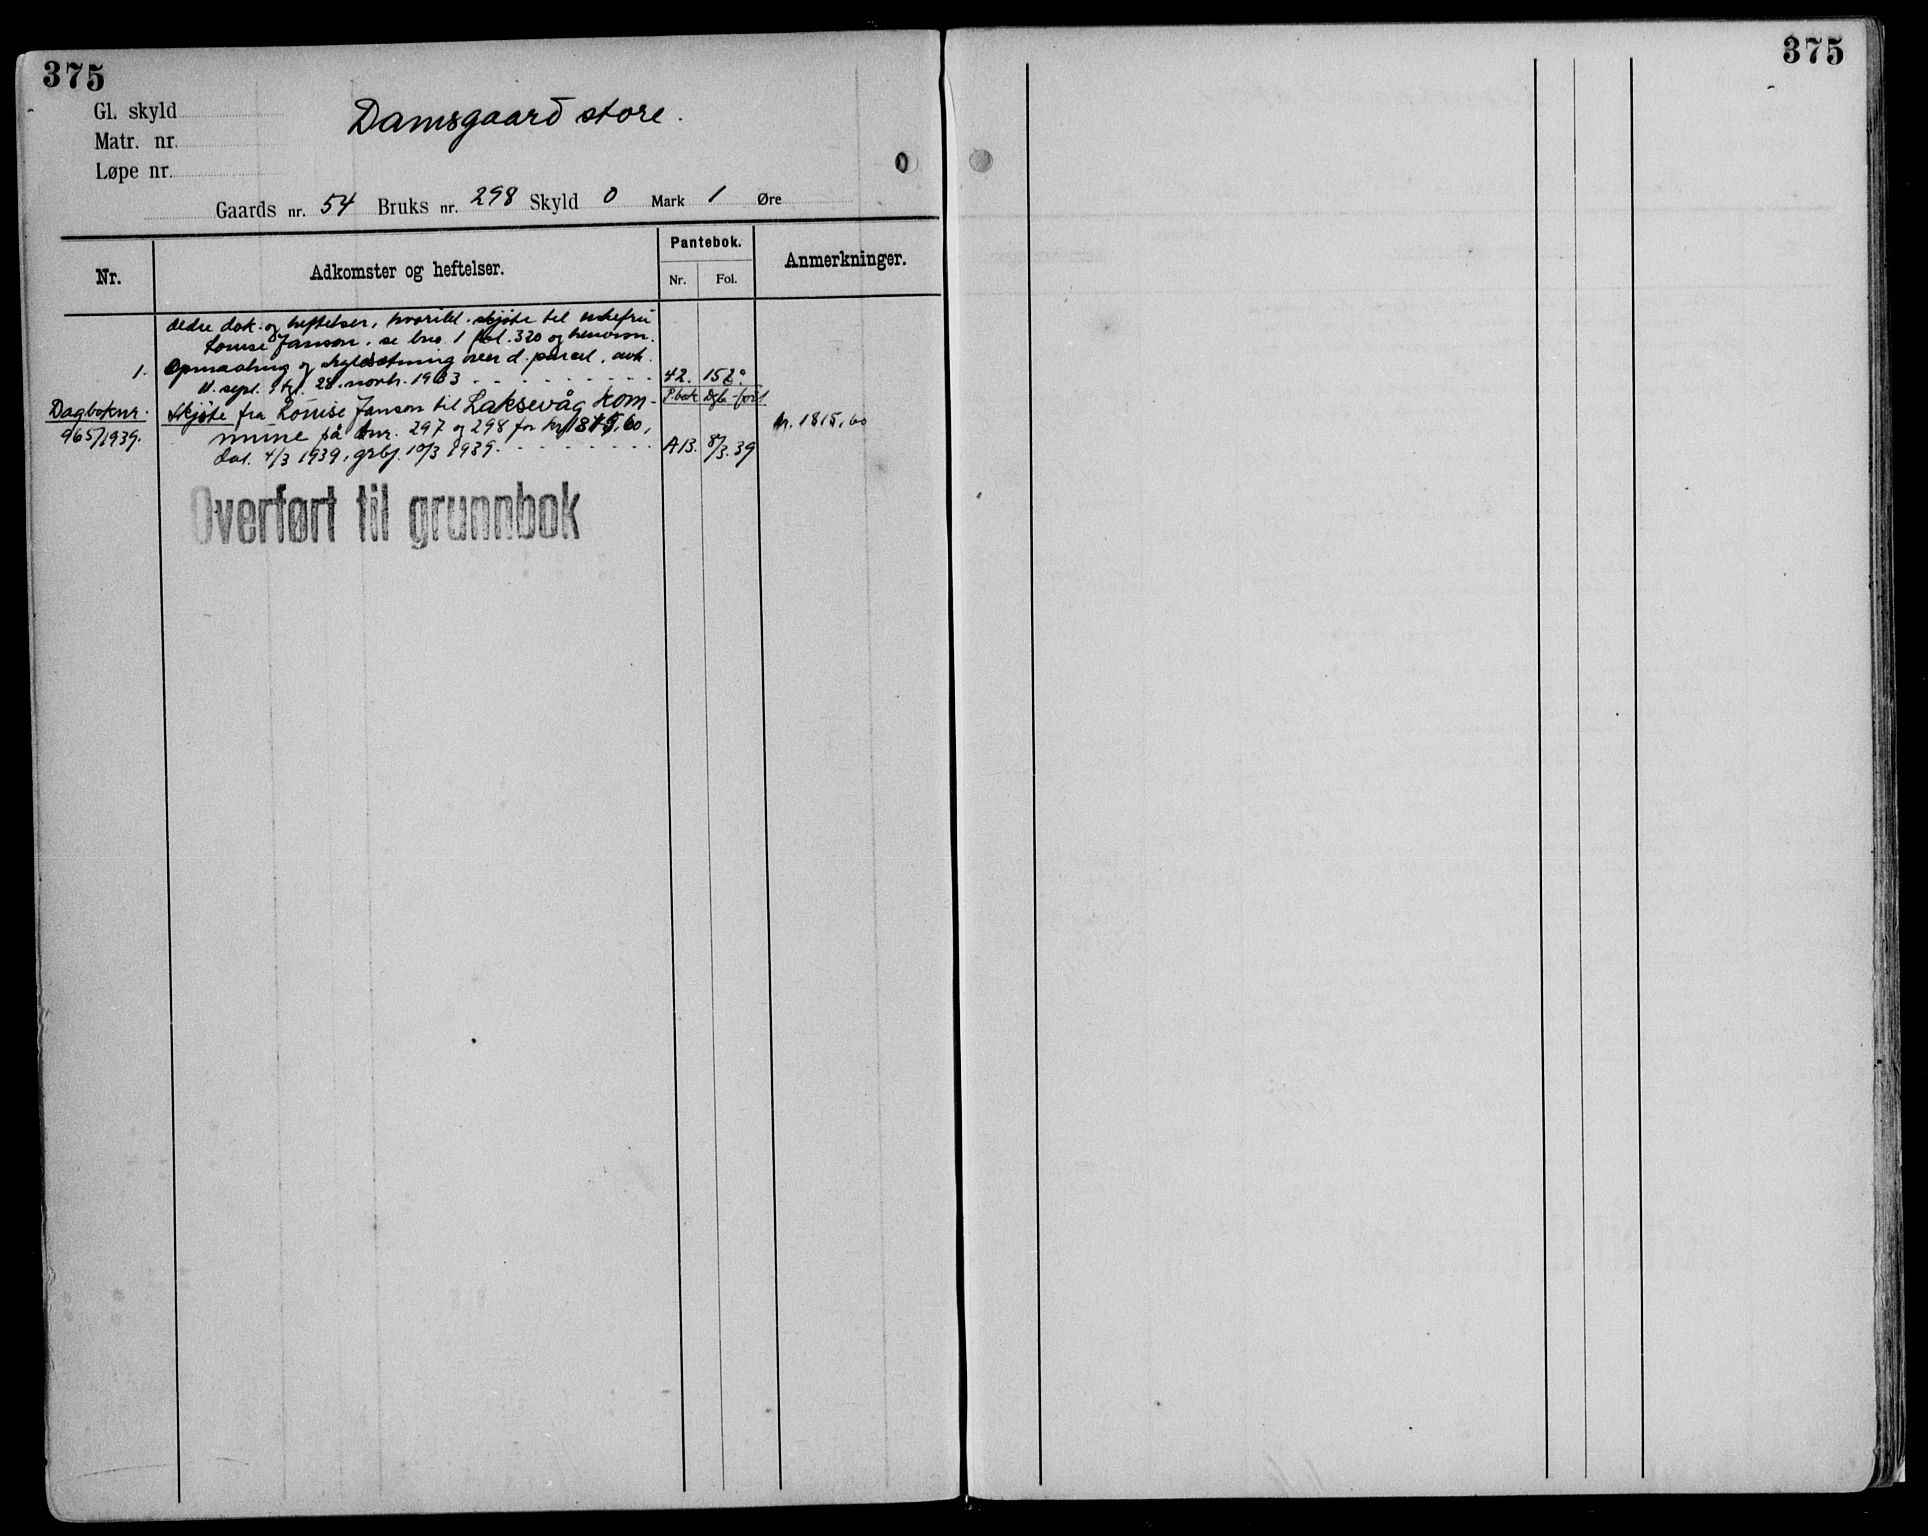 375
375
Gl. skyld
Damsgaard store.
Matr. nr.
Løpe nr.
Gaards nr. 54 Bruks nr. 298 Skyld 0 Mark 1 Øre
Nr.
Adkomster og heftelser.
Pantebok.
Nr. Fol.
Anmerkninger.
Ældre dok. og heftelser, hvoribl. skjøte til enkefru
Louise Janson, se bno. 1 fol. 320 og henvisn.
1. Opmaaling og skyldsætning over d. parcel, avh.
11. sept., tgl. 28. novb. 1903 42.
Pbok Dgb-ført
Dagboknr. Skjøte fra Louise Janson til Laksevåg kom-
965/1939. mune på bnr. 297 og 298 for kr 1815,60, kr. 1815,60
dat. 4/3 1939, grbf. 10/3 1939. A13. 8/3.39
Overført til grunnbok